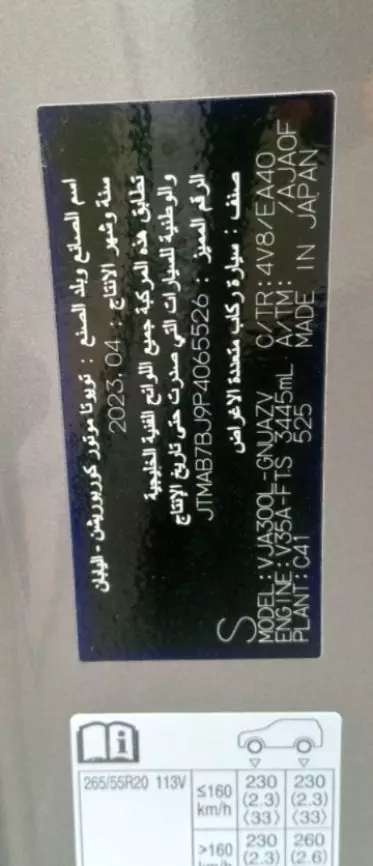 اسم الصانع وبلد الصنع : تويوتا موتور كوربوريشن - اليابان
سنة وشهر الانتاج : 2023.04
تطابق هذه المركبة جميع اللوائح الفنية الخليجية
والوطنية للسيارات التي صدرت حتى تاريخ الإنتاج
الرقم المميز : JTMAB7BJ9P4065526
صنف : سيارة ركاب متعددة الاغراض
S
MODEL:VJA300L-GNUAZV C/TR:4V8/EA40
ENGINE:V35A-FTS 3445mL A/TM: /AJA0F
PLANT:C41 525 MADE IN JAPAN
265/55R20 113V
≤160 km/h 230 (2.3) ⟨33⟩ 230 (2.3) ⟨33⟩
>160 km/h 230 (2.3) 260 (2.6)